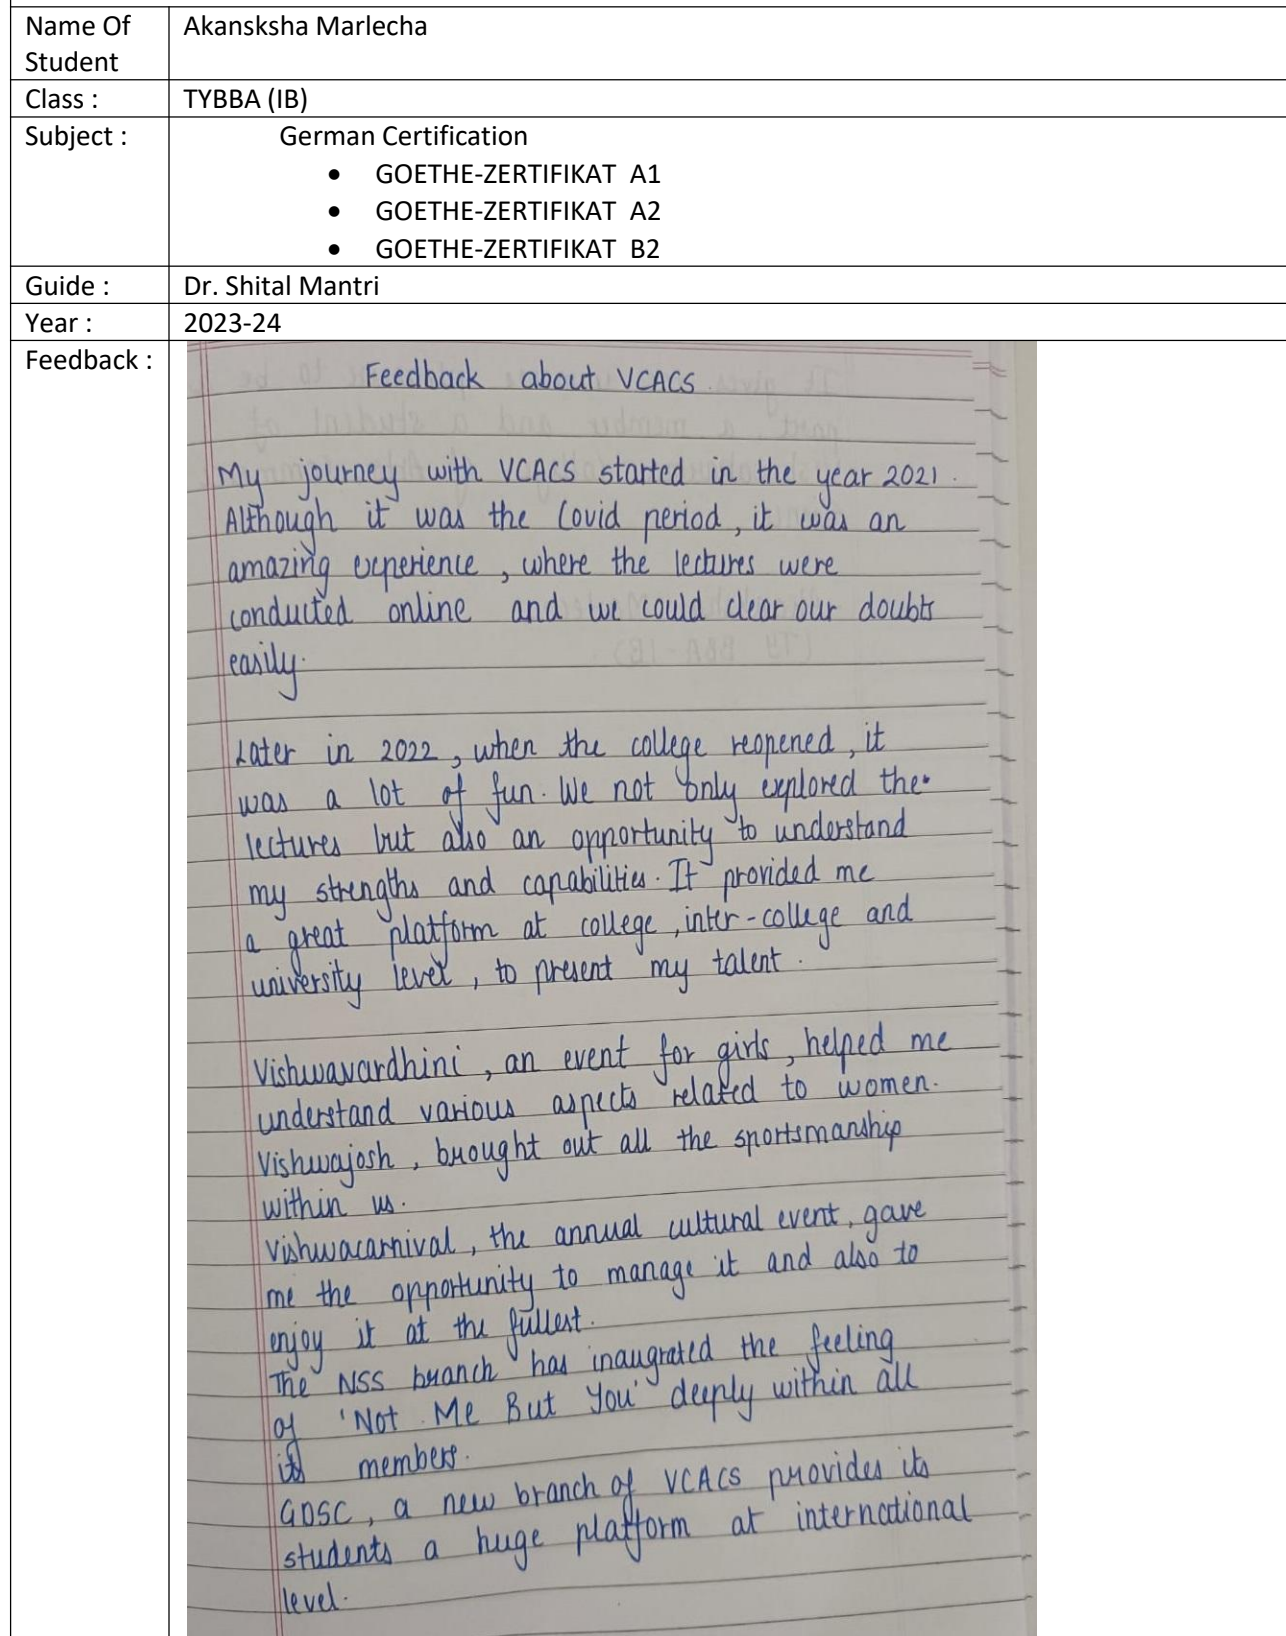 Name Of Student
Akansksha Marlecha
Class :
TYBBA (IB)
Subject :
German Certification
• GOETHE-ZERTIFIKAT A1
• GOETHE-ZERTIFIKAT A2
• GOETHE-ZERTIFIKAT B2
Guide :
Dr. Shital Mantri
Year :
2023-24
Feedback :
Feedback about VCACS.
My journey with VCACS started in the year 2021.
Although it was the Covid period, it was an
amazing experience, where the lectures were
conducted online and we could clear our doubts
easily.
Later in 2022, when the college reopened, it
was a lot of fun. We not only explored the
lectures but also an opportunity to understand
my strengths and capabilities. It provided me
a great platform at college, inter-college and
university level, to present my talent.
Vishwavardhini, an event for girls, helped me
understand various aspects related to women.
Vishwajosh, brought out all the sportsmanship
within us.
Vishwacarnival, the annual cultural event, gave
me the opportunity to manage it and also to
enjoy it at the fullest.
The NSS branch has inaugrated the feeling
of 'Not Me But You' deeply within all
its members.
GDSC, a new branch of VCACS provides its
students a huge platform at international
level.